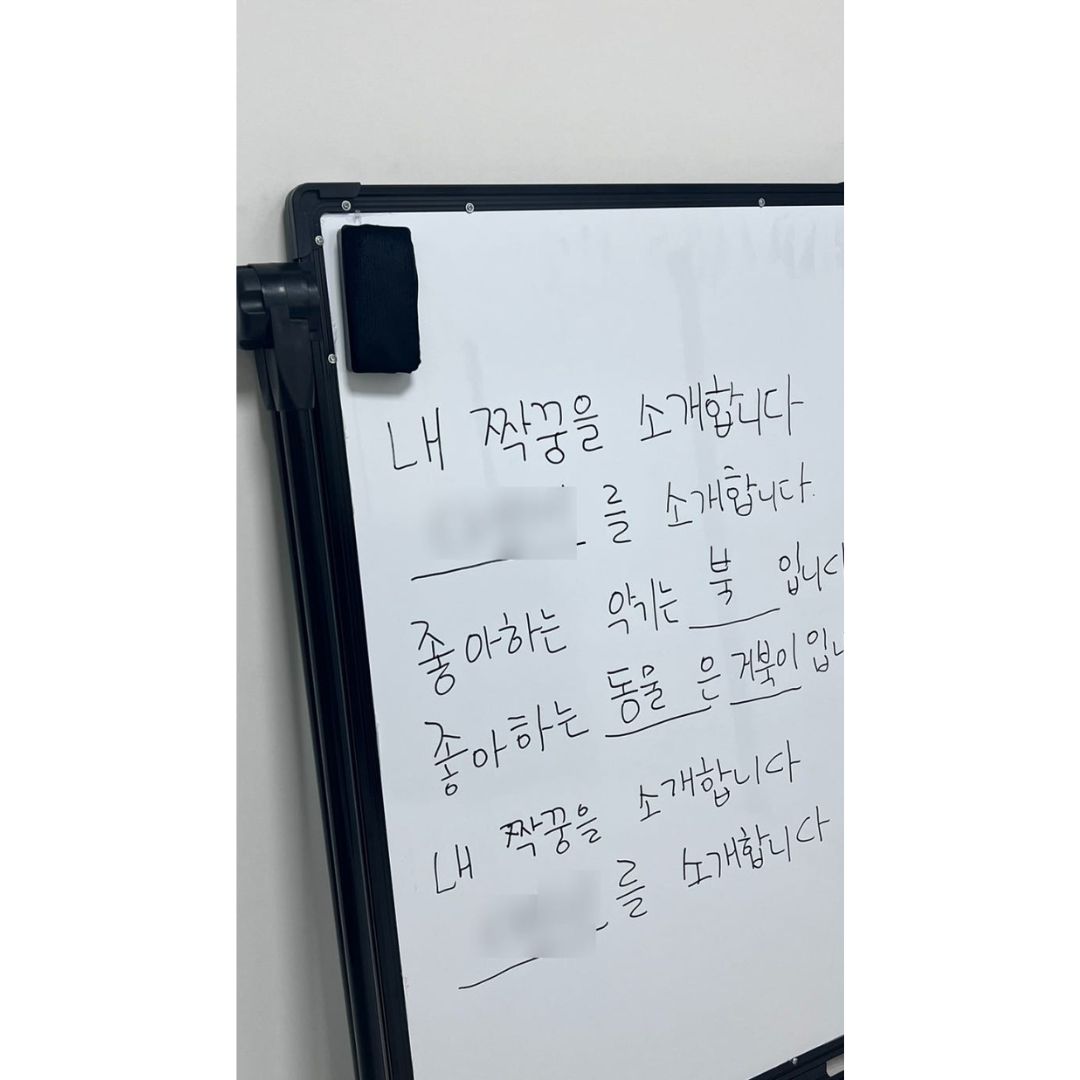 내 짝꿍을 소개합니다
를 소개합니다.
좋아하는 악기는 북
좋아하는 동물은 거북이
내 짝꿍을 소개합니다
를 소개합니다